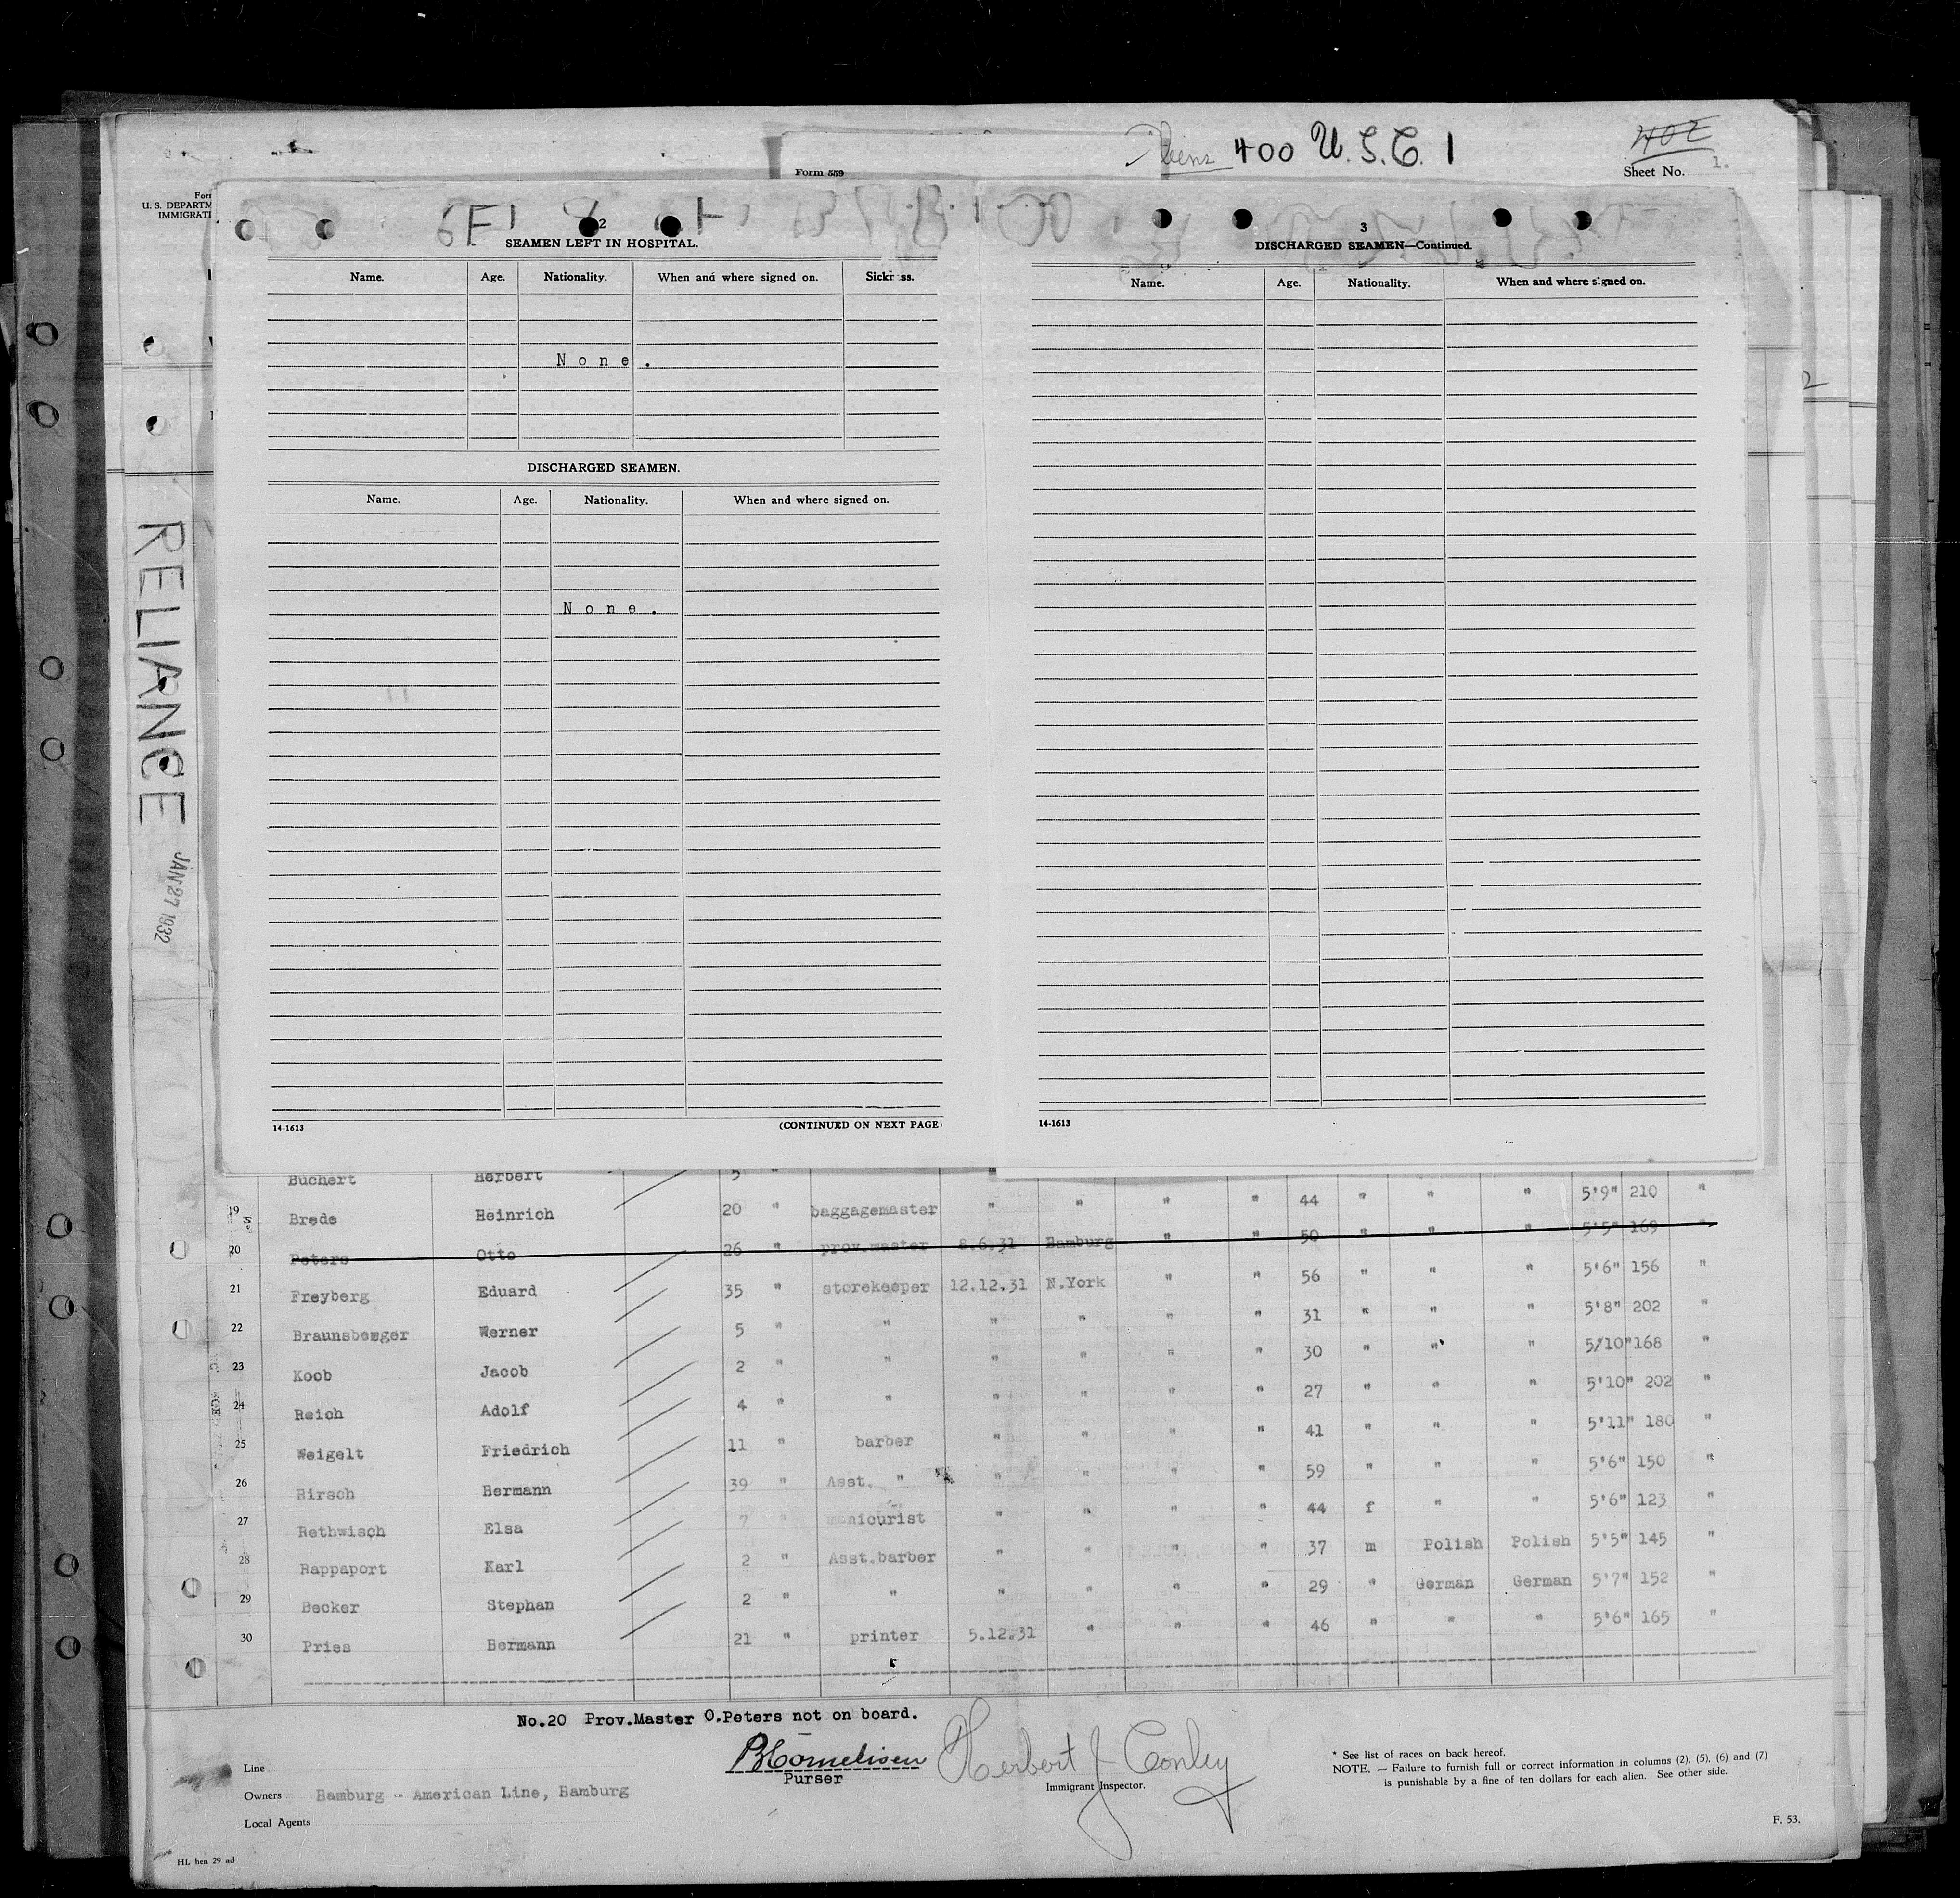 400 U.S.C. 1
402
Sheet No. 1.
Form 559
U. S. DEPARTM
IMMIGRATI
RELIANCE
JAN 27 1932
2
SEAMEN LEFT IN HOSPITAL.
Name. Age. Nationality. When and where signed on. Sickness.
None.
DISCHARGED SEAMEN.
Name. Age. Nationality. When and where signed on.
None.
14-1613 (CONTINUED ON NEXT PAGE)
3
DISCHARGED SEAMEN—Continued.
Name. Age. Nationality. When and where signed on.
14-1613
Buchert Herbert 5 "
19 Brede Heinrich 20 " baggagemaster " " " " 44 " " " 5'9" 210 "
20 Peters Otto 26 " prov.master 8.6.31 Hamburg " " 50 " " " 5'5" 169 "
21 Freyberg Eduard 35 " storekeeper 12.12.31 N.York " " 56 " " " 5'6" 156 "
22 Braunsberger Werner 5 " " " " " " 31 " " " 5'8" 202 "
23 Koob Jacob 2 " " " " " " 30 " " " 5/10" 168 "
24 Reich Adolf 4 " " " " " " 27 " " " 5'10" 202 "
25 Weigelt Friedrich 11 " barber " " " " 41 " " " 5'11" 180 "
26 Hirsch Hermann 39 " Asst. " " " " " 59 " " " 5'6" 150 "
27 Rethwisch Elsa 7 " manicurist " " " " 44 f " " 5'6" 123 "
28 Rappaport Karl 2 " Asst.barber " " " " 37 m Polish Polish 5'5" 145 "
29 Becker Stephan 2 " " " " " " 29 " German German 5'7" 152 "
30 Pries Hermann 21 " printer 5.12.31 " " " 46 " " " 5'6" 165 "
No.20 Prov.Master O.Peters not on board.
Cornelisen
Purser
Herbert J Conley
Immigrant Inspector.
Line
Owners Hamburg - American Line, Hamburg
Local Agents
* See list of races on back hereof.
NOTE. — Failure to furnish full or correct information in columns (2), (5), (6) and (7)
is punishable by a fine of ten dollars for each alien. See other side.
F. 53.
HL hen 29 ad